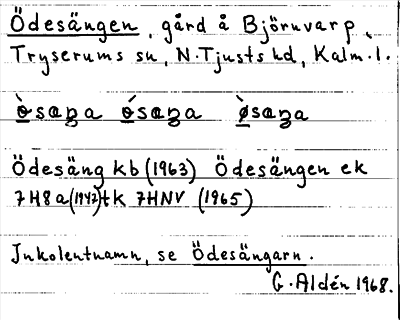 Ödesängen, gård å Björnvarp,
Tryserums sn, N. Tjusts hd, Kalm. l.
Ödesäng kb (1963) Ödesängen ek
7H8a (1947) tk 7HNV (1965)
Inkolentnamn, se Ödesängarn.
G. Aldén 1968.